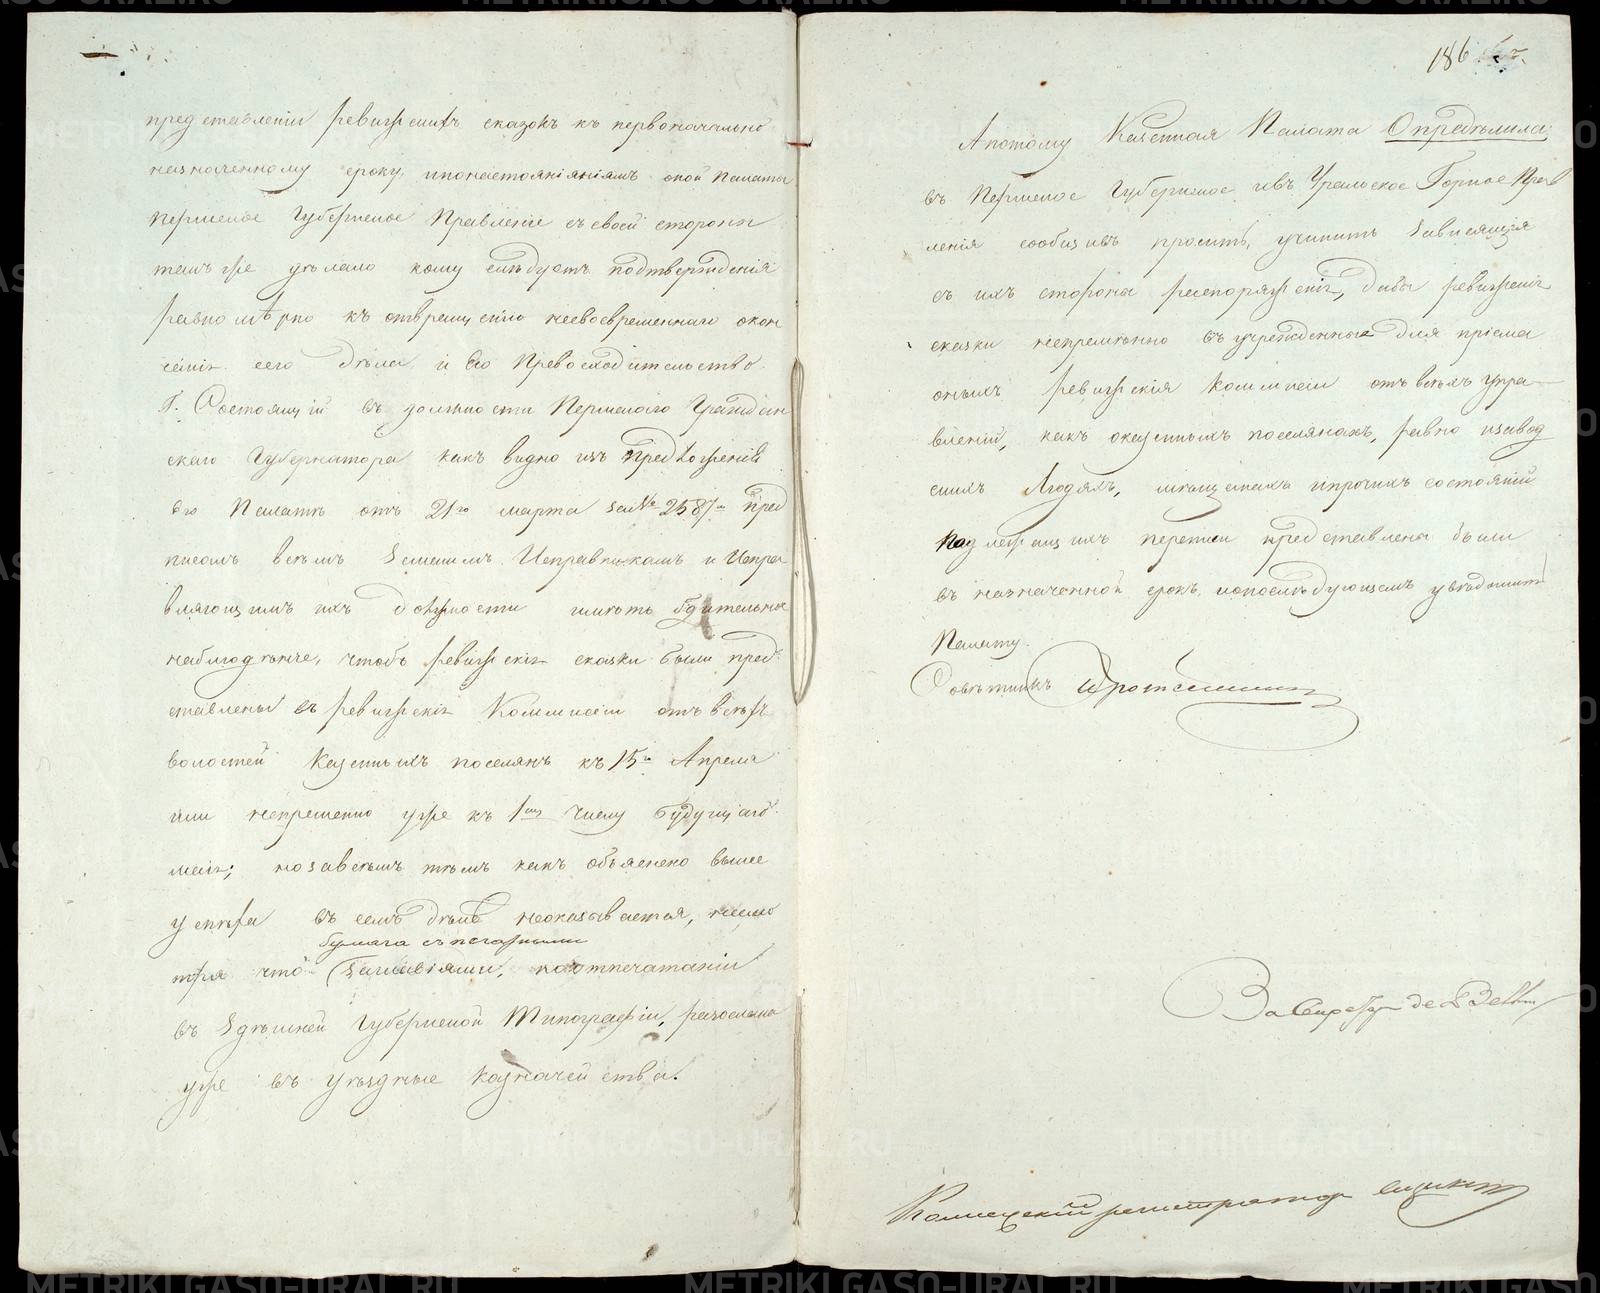 представленіи ревизскихъ сказокъ къ первоначально
назначенному сроку, и по настояніямъ оной Палаты
Пермское Губернское Правленіе съ своей стороны
также дѣлало кому слѣдуетъ подтвержденія
равномѣрно къ отвращенію несвоевременнаго окон
чанія сего дѣла и Его Превосходительство
Г. Состоящій въ должности Пермскаго Граждан
скаго Губернатора какъ видно изъ предложенія
его Палатѣ отъ 21го марта за № 2587м пред
писалъ всѣмъ Земскимъ Исправникамъ и Исправ
вляющимъ ихъ должности имѣть бдительное
наблюденіе, чтобъ ревизскія сказки были пред
ставлены въ ревизскія Коммисіи отъ всѣхъ
волостей Казенныхъ поселянъ къ 15му Апреля
или непременно уже къ 1му числу будущаго
маія; но за всѣмъ тѣмъ какъ объяснено выше
успѣха въ семъ дѣлѣ неоказывается, несмо
бумага съ
тря что заглавіями, по отпечатаніи
въ Здѣшней Губернской Типографіи, разослана
уже въ уѣздные казначейства.
186
А потому Казенная Палата Опредѣлила:
въ Пермское Губернское и въ Уральское Горное Прав
ленія сообщивъ просить, учинить зависящія
съ ихъ стороны распоряженія, дабы ревизскія
сказки непремѣнно въ учрежденные для пріема
оныхъ ревизскія коммисіи отъ всѣхъ упра
вленій, какъ о казенныхъ поселянахъ, равно и завод
скихъ людяхъ, мѣщанахъ и прочихъ состояній
подлежащихъ переписи представлена были
въ назначенной срокъ, и о послѣдующемъ увѣдомить
Палату.
Совѣтникъ
За Секретаря
Коллежскій регистраторъ
METRIKI.GASO-URAL.RU